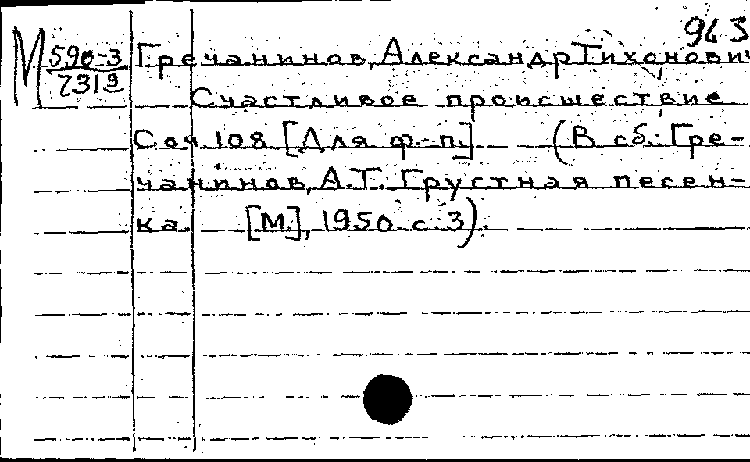 943
М 590-3 Гречанинов, Александр Тихонович
7319
Счастливое происшествие
Соч. 108 [Для ф.-п.] (В сб.: Гре-
чанинов, А.Т. Грустная песен-
ка. [М.], 1950. с. 3).